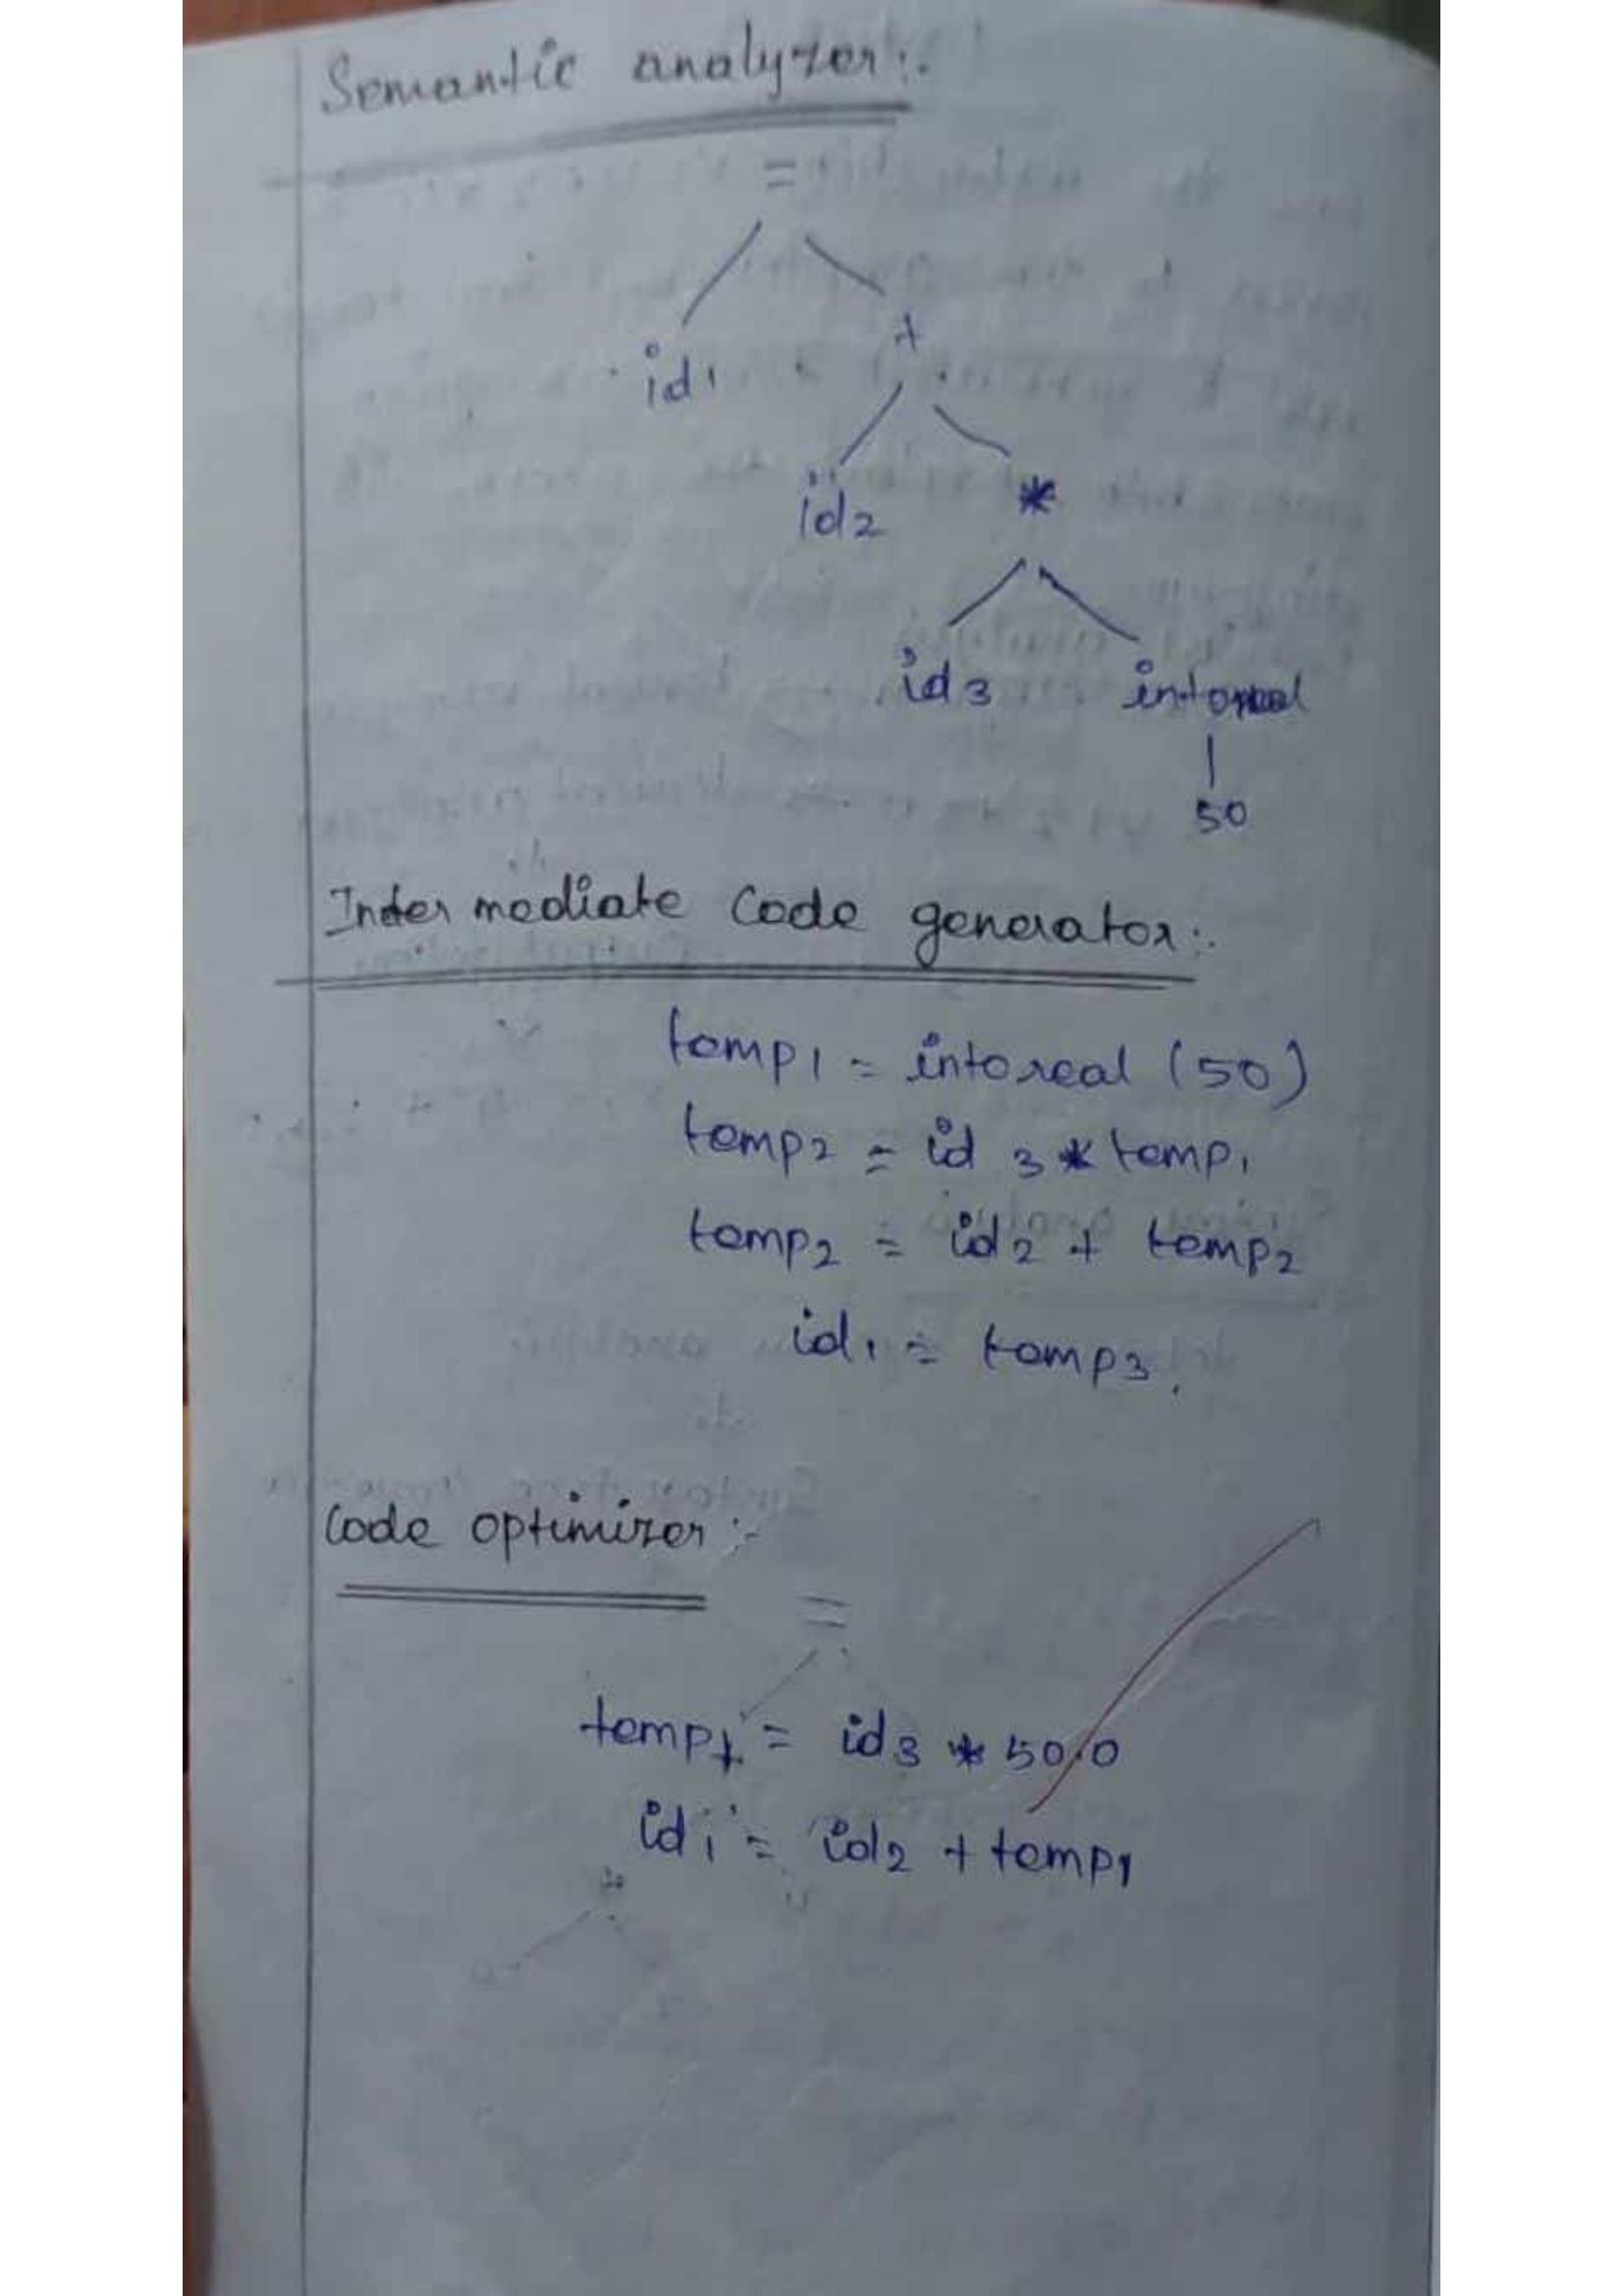 Semantic analyzer:.
=
id1 +
id2 *
id3 intoreal
50
Intermediate Code generator:.
temp1 = intoreal (50)
temp2 = id 3 * temp1
temp2 = id2 + temp2
id1 = temp3.
Code optimizer :-
temp1 = id3 * 50.0
id1 = id2 + temp1